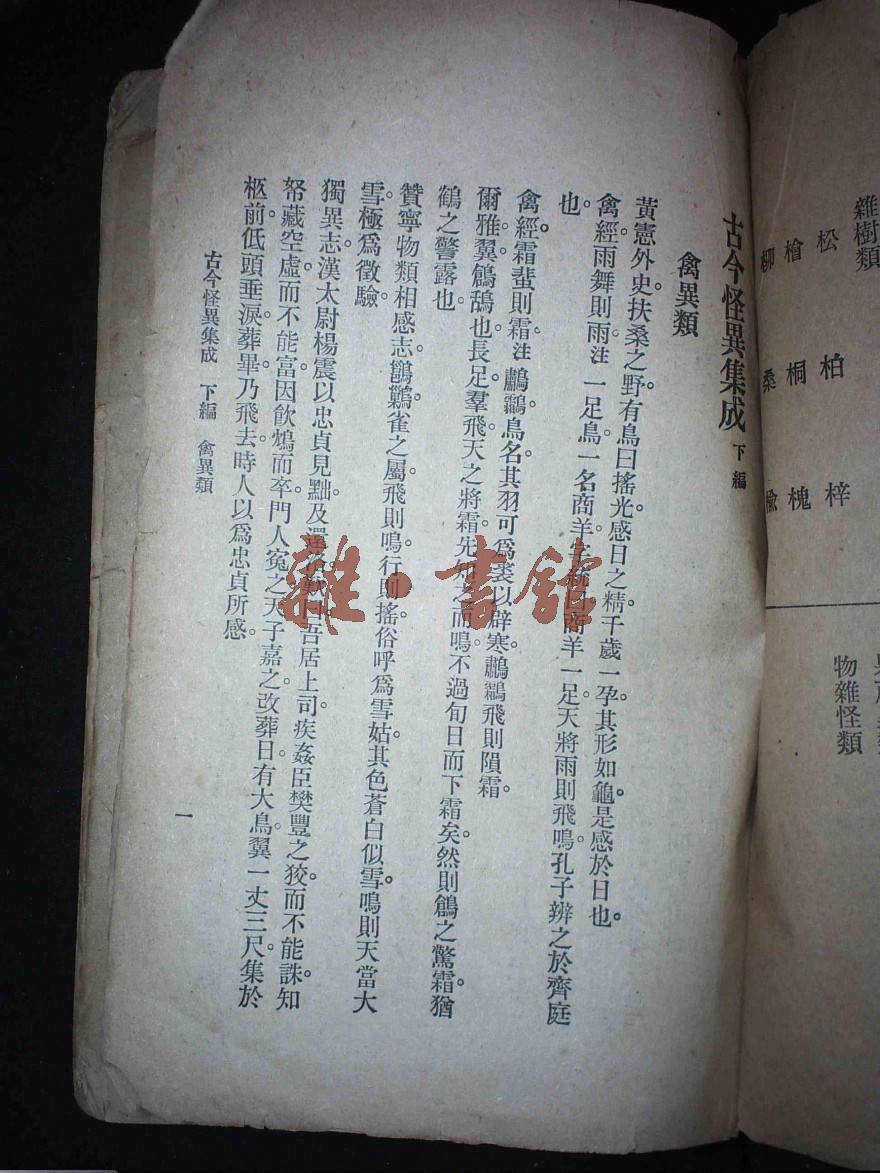 雜樹類
松 柏 梓
檜 桐 槐
柳 桑 榆
物雜怪類
古今怪異集成 下編
禽異類
黃憲外史扶桑之野有鳥曰搖光感日之精千歲一孕其形如龜是感於日也。
禽經雨舞則雨注 一足鳥一名商羊字統曰商羊一足天將雨則飛鳴孔子辨之於齊庭
也。
禽經霜蜚則霜注 鸕鷫鳥名其羽可爲裘以辟寒鸕鷫飛則隕霜。
爾雅翼鶬鴰也長足羣飛天之將霜先知之而鳴不過旬日而下霜矣然則鶬之驚霜猶
鶴之警露也
贊寧物類相感志鶺鴒雀之屬飛則鳴行則搖俗呼爲雪姑其色蒼白似雪鳴則天當大
雪極爲徵驗
獨異志漢太尉楊震以忠貞見黜及還 吾居上司疾姦臣樊豐之狡而不能誅知
帑藏空虛而不能富因飮鴆而卒門人寃之天子嘉之改葬日有大鳥翼一丈三尺集於
柩前低頭垂淚葬畢乃飛去時人以爲忠貞所感。
古今怪異集成 下編 禽異類
一
雜·書館